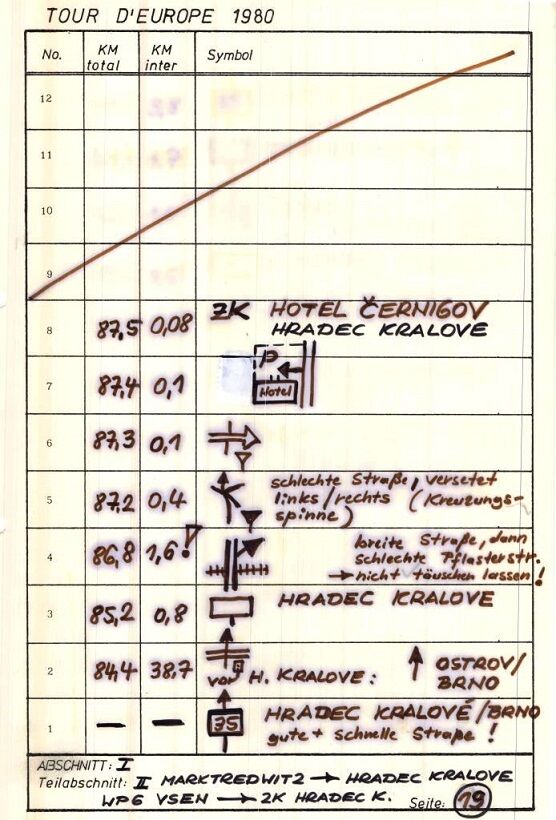 TOUR D'EUROPE 1980
No. KM total KM inter Symbol
12
11
10
9
8 87,5 0,08 ZK HOTEL ČERNIGOV
HRADEC KRALOVE
7 87,4 0,1 P
Hotel
6 87,3 0,1
5 87,2 0,4 schlechte Straße, versetet
links/rechts (Kreuzungs-
spinne)
4 86,8 1,6! breite Straße, dann
schlechte Pflasterstr.
→ nicht täuschen lassen!
3 85,2 0,8 HRADEC KRALOVE
2 84,4 38,7 vor H. KRALOVE: ↑ OSTROV/
BRNO
1 — — 35 HRADEC KRALOVÉ/BRNO
gute + schnelle Straße!
ABSCHNITT: I
Teilabschnitt: II MARKTREDWITZ → HRADEC KRALOVE
WP6 VSEN → ZK HRADEC K. Seite: 19